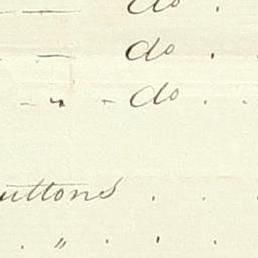 — do .
— do . .
- " - do . .
uttons . . .
. " . . .